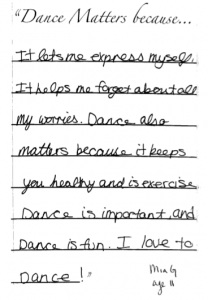 "Dance Matters because...
It lets me express myself.
It helps me forget about all
my worries. Dance also
matters because it keeps
you healthy and is exercise
Dance is important, and
Dance is fun. I love to
Dance!"
Mia G
age 11